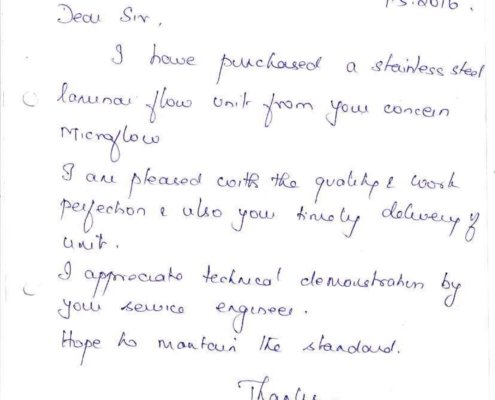 .2016.
Dear Sir,
I have purchased a stainless steel
laminar flow unit from your concern
Microflow
I am pleased with the quality & work
perfection & also your timely delivery of
unit.
I appreciate technical demonstration by
your service engineer.
Hope to maintain the standard.